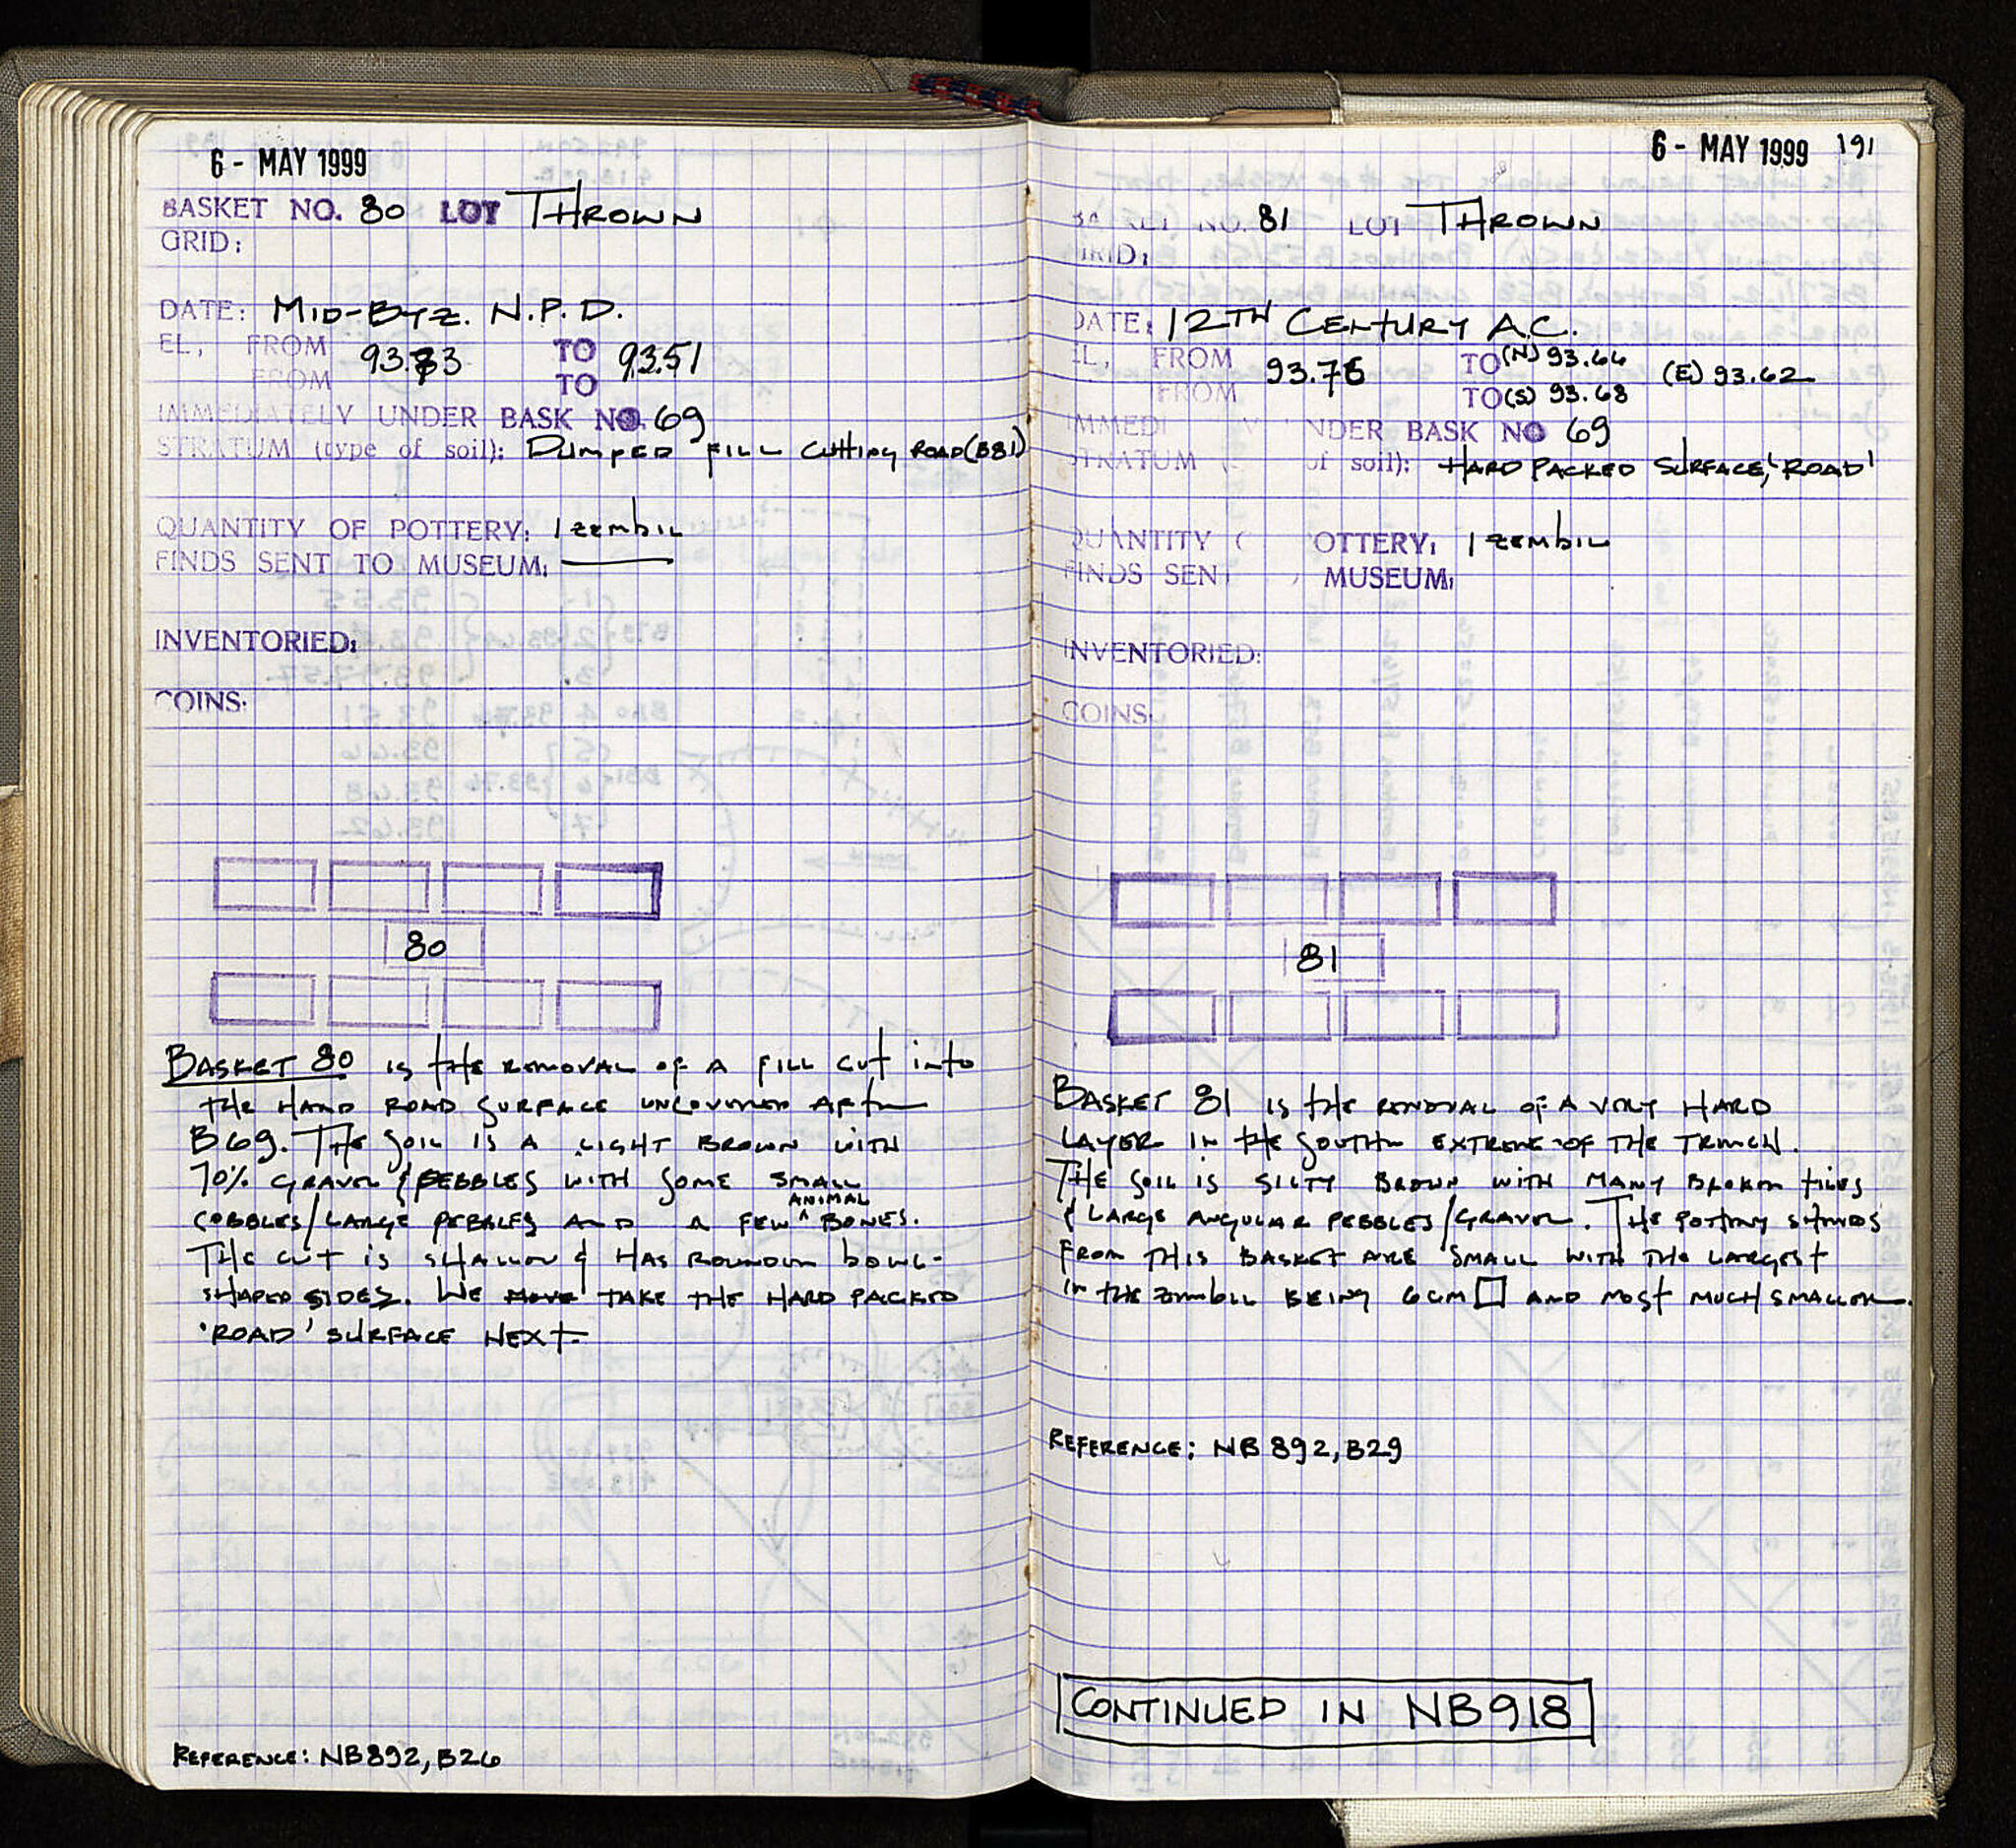 6 - MAY 1999
BASKET NO. 80 LOT THROWN
GRID:
DATE: MID-BYZ. N.P.D.
EL, FROM 93.73 TO 93.51
FROM TO
IMMEDIATELY UNDER BASK NO. 69
STRATUM (type of soil): DUMPED FILL CUTTING ROAD (B81)
QUANTITY OF POTTERY: 1 zembil
FINDS SENT TO MUSEUM: ———
INVENTORIED:
COINS:
80
BASKET 80 is the REMOVAL OF A FILL CUT into
the HARD ROAD SURFACE UNCOVERED AFTER
B69. THE SOIL IS A LIGHT BROWN WITH
70% GRAVEL & PEBBLES WITH SOME SMALL
COBBLES/LARGE PEBBLES AND A FEW ^ANIMAL BONES.
THE CUT is SHALLOW & HAS ROUNDED bowl-
SHAPED SIDES. WE TAKE THE HARD PACKED
'ROAD' SURFACE NEXT.
REFERENCE: NB892, B26
6 - MAY 1999 191
BASKET NO. 81 LOT THROWN
GRID:
DATE: 12TH CENTURY A.C.
EL, FROM 93.76 TO (N) 93.66 (E) 93.62
FROM TO (S) 93.68
IMMEDI NDER BASK NO 69
STRATUM of soil): HARD PACKED SURFACE, 'ROAD'
QUANTITY OTTERY: 1 zembil
FINDS SENT MUSEUM:
INVENTORIED:
COINS:
81
BASKET 81 is the REMOVAL OF A VERY HARD
LAYER IN the SOUTHERN EXTREME OF THE TRENCH.
THE SOIL IS SILTY BROWN WITH MANY BROKEN tiles
& LARGE ANGULAR PEBBLES/GRAVEL. THE POTTERY SHERDS
FROM THIS BASKET ARE SMALL WITH THE LARGEST
in the zembil BEING 6cm □ AND MOST MUCH SMALLER.
REFERENCE: NB 892, B29
CONTINUED IN NB918